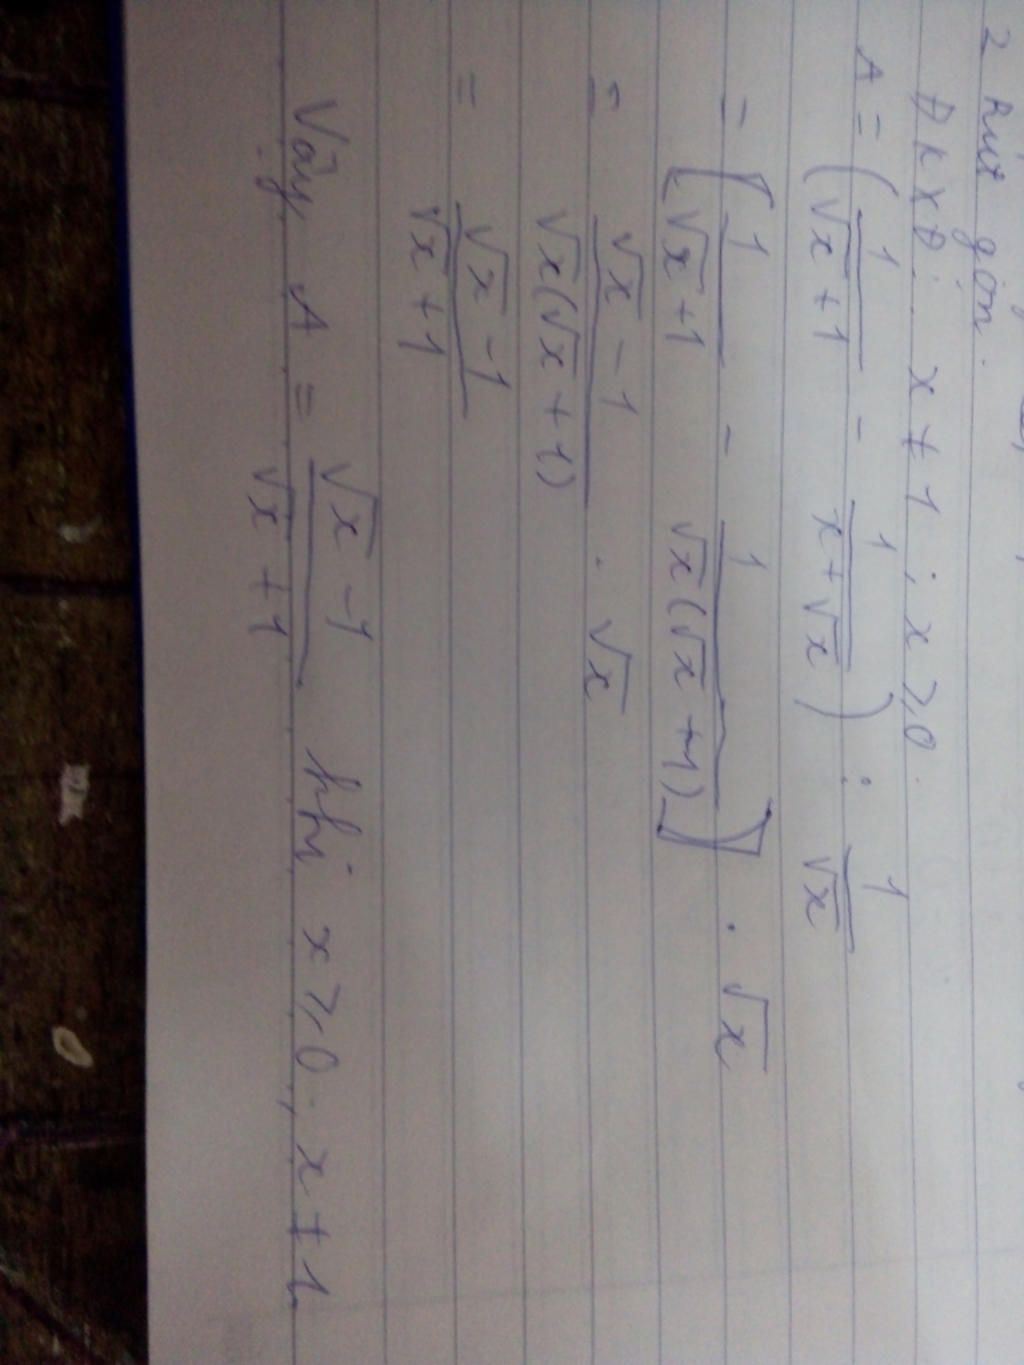 2 Rút gọn.
ĐKXĐ: x ≠ 1; x ≥ 0.
A = (1/(√x + 1) - 1/(x + √x)) : 1/√x
= [1/(√x + 1) - 1/(√x(√x + 1))] . √x
= (√x - 1)/(√x(√x + 1)) . √x
= (√x - 1)/(√x + 1)
Vậy A = (√x - 1)/(√x + 1) khi x ≥ 0; x ≠ 1.